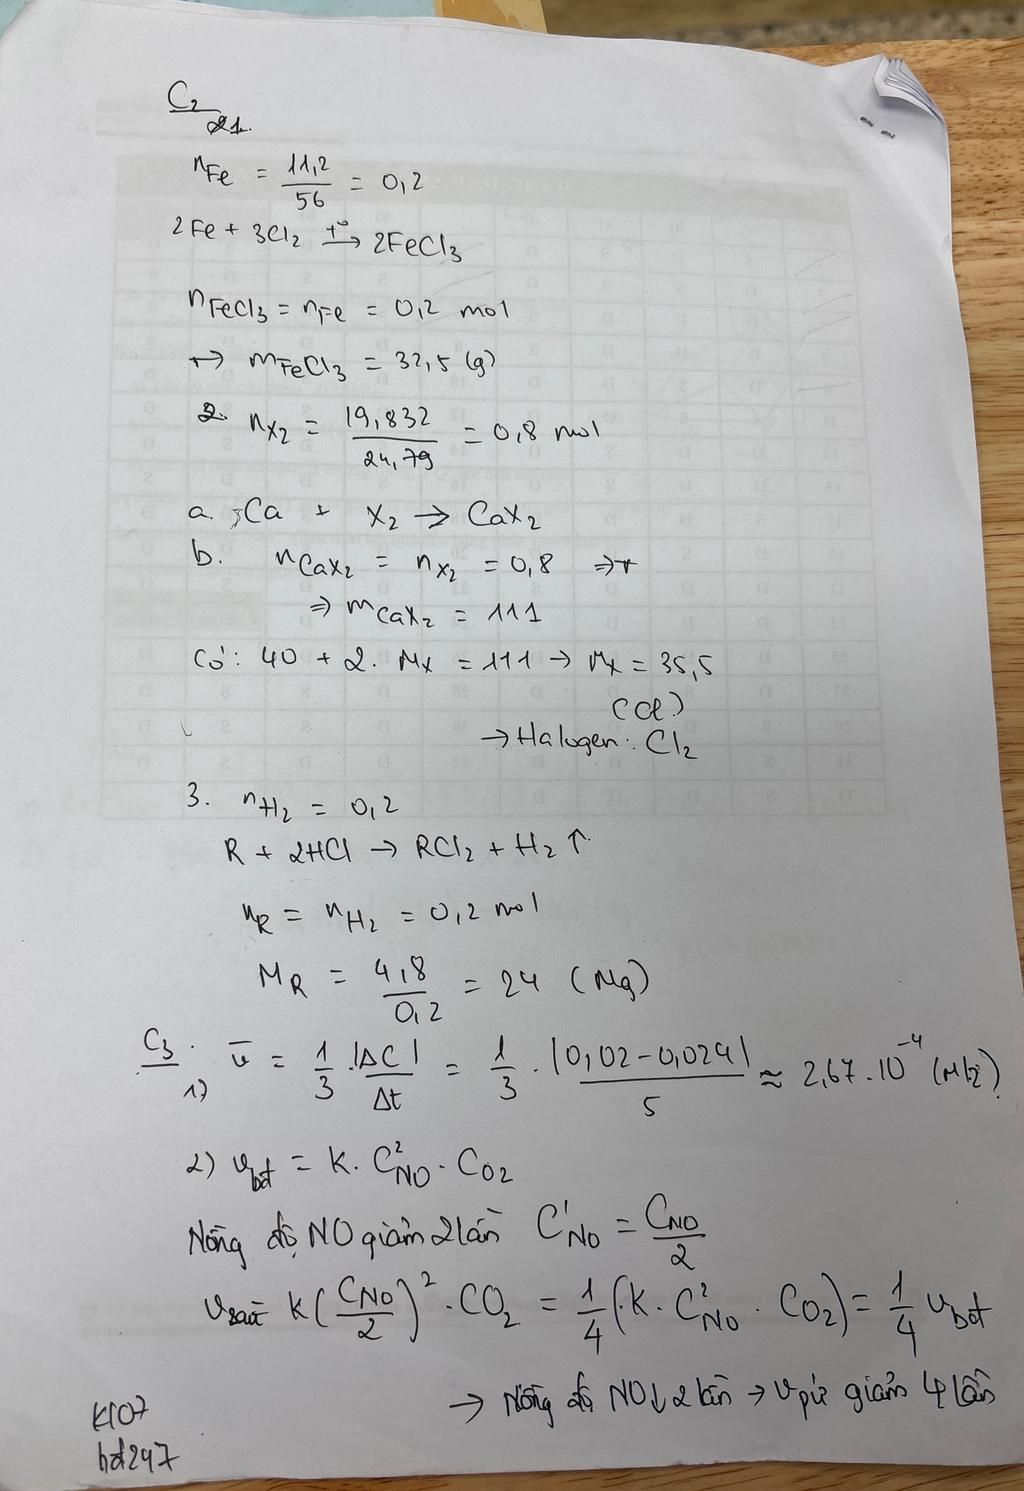 C2
21.
nFe = 11,2/56 = 0,2
2Fe + 3Cl2 t° → 2FeCl3
nFeCl3 = nFe = 0,2 mol
→ mFeCl3 = 32,5 (g)
2. nX2 = 19,832/24,79 = 0,8 mol
a. Ca + X2 → CaX2
b. nCaX2 = nX2 = 0,8 ⇒
⇒ mCaX2 = 111
Có: 40 + 2. Mx = 111 → Mx = 35,5
(Cl)
→ Halogen: Cl2
3. nH2 = 0,2
R + 2HCl → RCl2 + H2 ↑
nR = nH2 = 0,2 mol
MR = 4,8/0,2 = 24 (Mg)
C3.
1) v̄ = 1/3 . |ΔC|/Δt = 1/3 . |0,02 - 0,024|/5 ≈ 2,67.10⁻⁴ (M/s)
2) vbđ = K. C²NO. CO2
Nồng độ NO giảm 2 lần C'NO = CNO/2
vsau K(CNO/2)² . CO2 = 1/4 (K. C²NO . CO2) = 1/4 vbđ
→ Nồng độ NO↓ 2 lần → v pứ giảm 4 lần
K107
hd247